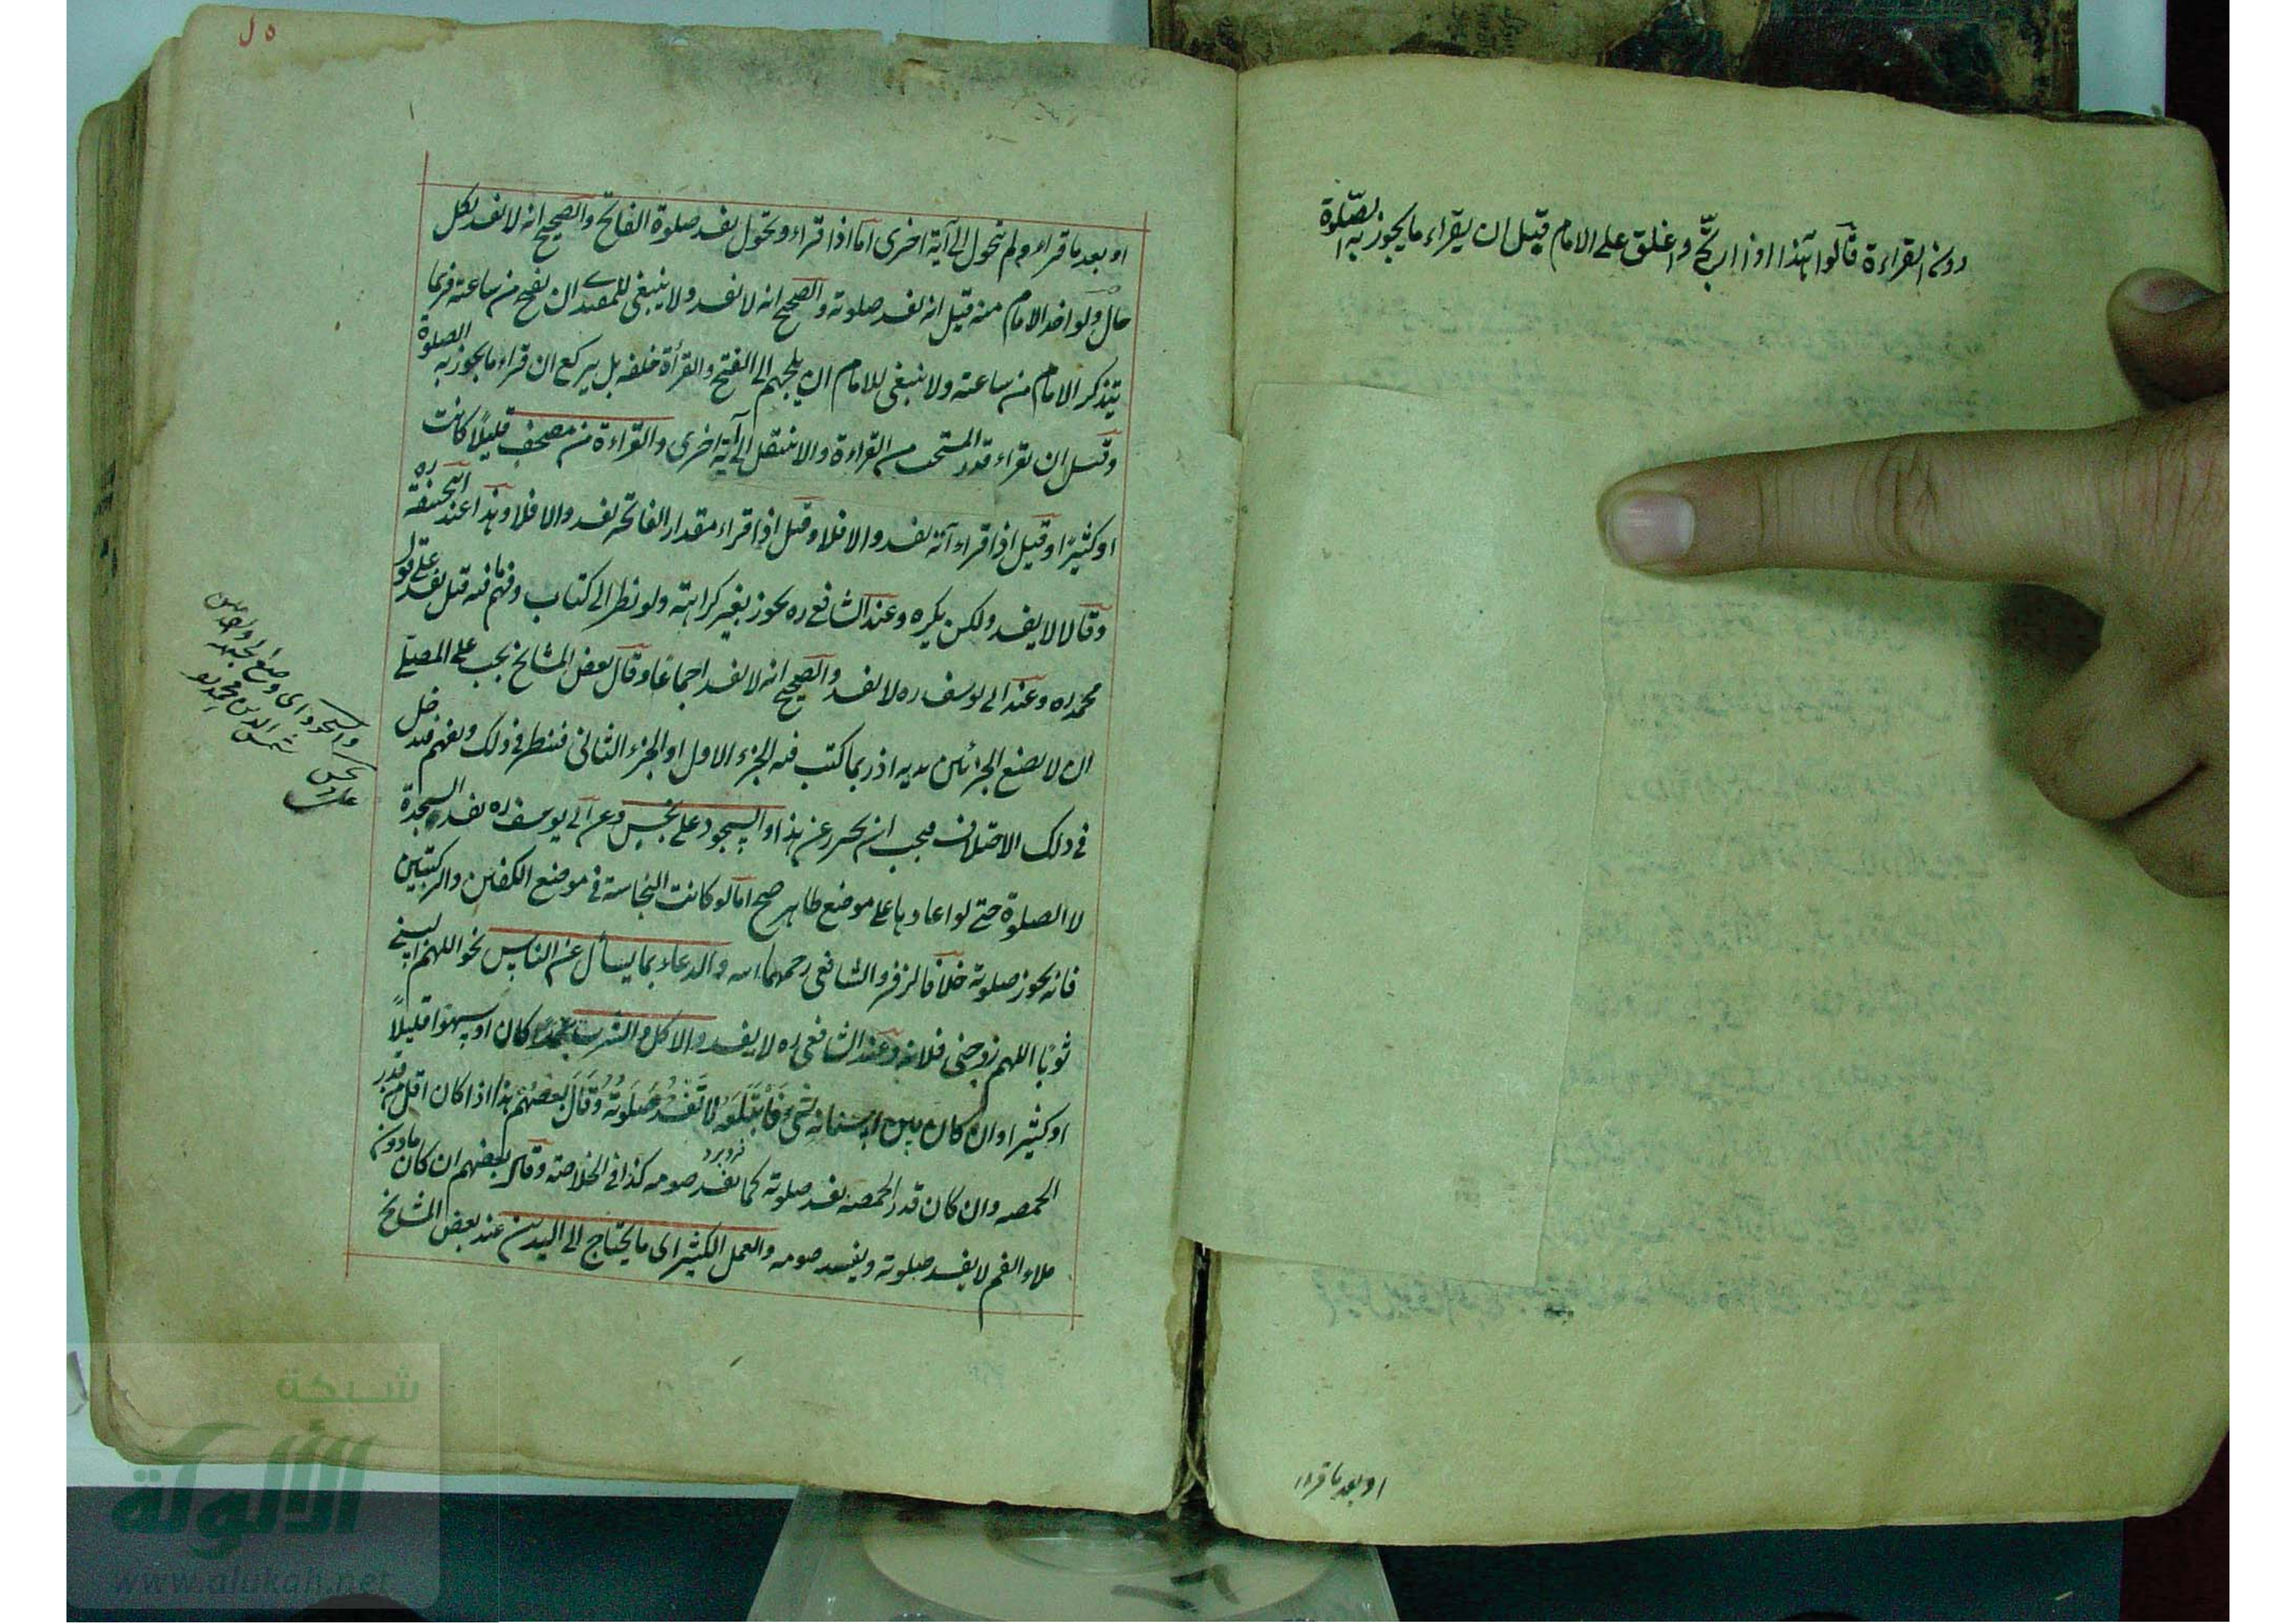 دون القراءة قالوا هذا اذا ارتج واغلق على الامام قبل ان يقراء ما يجوز به الصلوة
او بعد ما قراء
او بعد ما قراء ولم يتحول الى آية اخرى اما اذا قراء وتحول يفسد صلوة الفاتح والصحيح انه لا يفسد بكل
حال ولو اخذ الامام منه قيل انه يفسد صلوته والصحيح انه لا يفسد ولا ينبغي للمقتدي ان يفتح من ساعته فربما
يتذكر الامام من ساعته ولا ينبغي للامام ان يلجهم الى الفتح والقرأة خلفه بل يركع ان قراء ما يجوز به الصلوة
وقيل ان يقراء قدر المستحب من القراءة والا ينتقل الى آية اخرى والقراءة من مصحف قليلاً كانت
او كثيرًا وقيل اذا قراء آية يفسد والا فلا وقيل اذا قراء مقدار الفاتحه يفسد والا فلا وهذا عند ابيحنيفة ره
وقالا لا يفسد ولكن يكره وعند الشافعي ره يجوز بغير كراهته ولو نظر الى كتاب وفهم ما فيه قيل يفسد على قول
محمد ره وعند ابي يوسف ره لا يفسد والصحيح انه لا يفسد اجماعًا وقال بعض المشايخ يجب على المصلي
ان لا يضع الجزئين يديه اذ ربما كتب فيه الجزء الاول او الجزء الثاني فينظر في ذلك ويفهم فيدخل
في ذلك الاختلاف فيجب ان يحترز عن هذا والسجود على نجس وعن ابي يوسف ره يفسد السجدة
لا الصلوة حتى لو اعادها على موضع طاهر صح اما لو كانت النجاسة في موضع الكفين والركبتين
فانه يجوز صلوته خلافا لزفر والشافعي رحمهما الله والدعاء بما يسأل عن الناس نحو اللهم البسني
ثوبًا اللهم زوجني فلانة وعند الشافعي ره لا يفسد والاكل والشرب عمدًا كان او سهوًا قليلاً
او كثيرا وان كان بين اسنانه شيء فابتلعه لا تفسد صلوته وقال بعضهم هذا اذا كان اقل من قدر
الحمصه وان كان قدر الحمصه يفسد صلوته كما يفسد صومه كذا في الخلاصة وقال بعضهم ان كان ما دون
فرو برد
ملاء الفم لا يفسد صلوته ويفسد صومه والعمل الكثير اى ما يحتاج الى اليدين عند بعض المشايخ
والسجود اى وضع
شمس الدين محمد
على نجس
شبكة
الألوكة
www.alukah.net